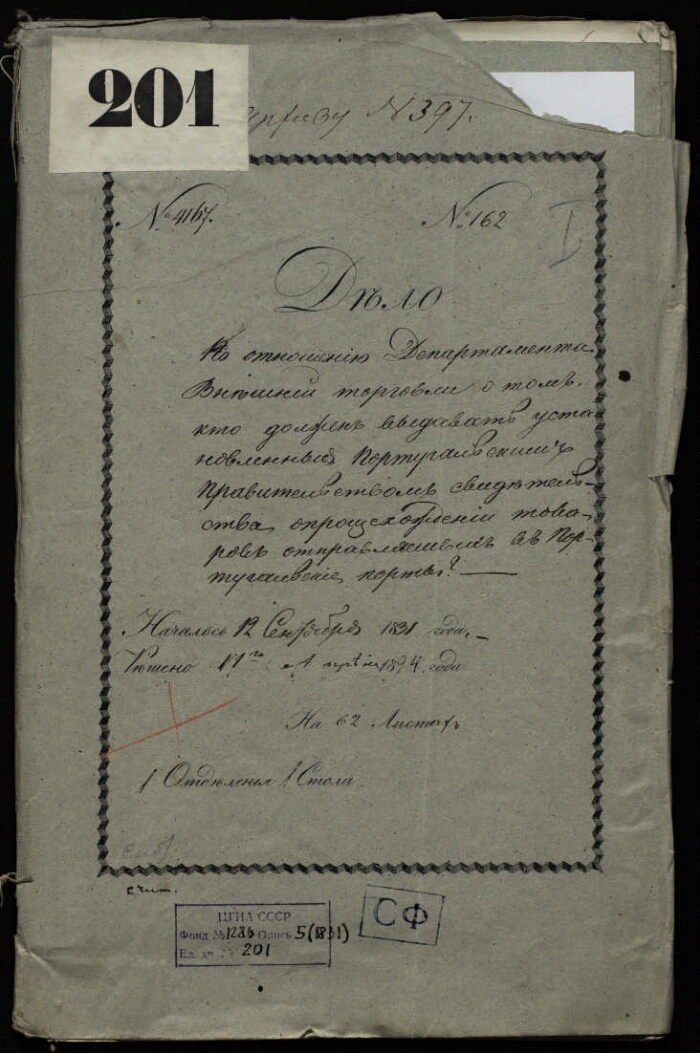 201
№ 397.
№ 4167.
№ 162
I
Дѣло
По отношенію Департамента
Внѣшней торговли о томъ,
кто долженъ выдавать уста
новленныя Португальскимъ
Правительствомъ свидѣтель-
ства опроисхожденіи това-
ровъ отправляемыхъ въ Пор-
тугальскіе порты? —
Началось 12 Сентября 1831 года. –
Рѣшено 17го Апрѣля 1834 года
На 62 Листахъ
1 Отдѣленія 1 Стола
ЦГИА СССР
Фонд № 1286 Опись 5 (1831)
Ед. хр. № 201
СФ